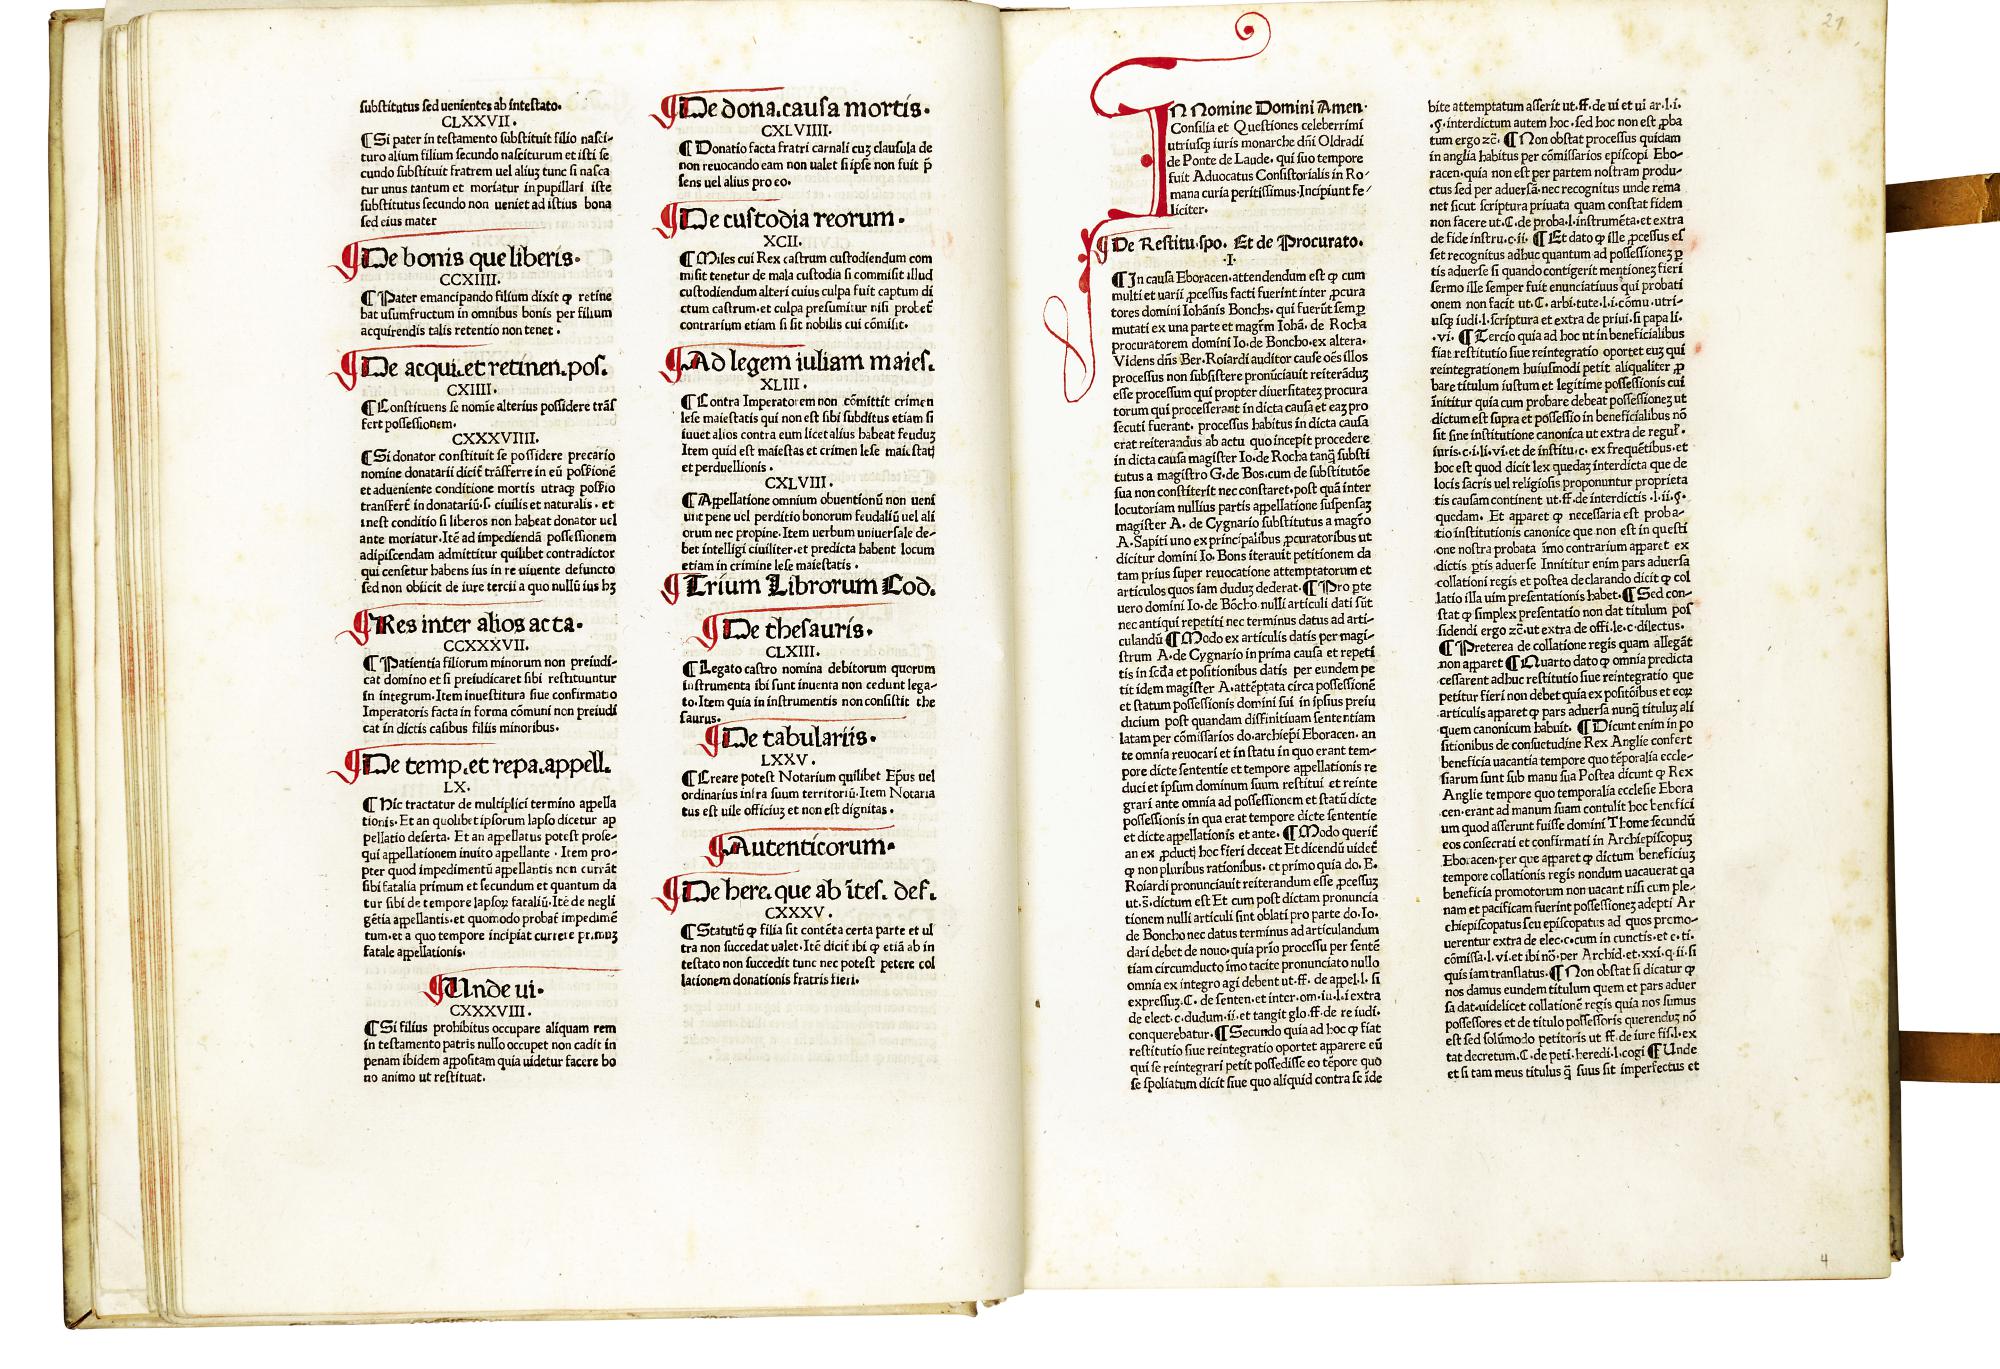 substitutus sed uenientes ab intestato.
CLXXVII.
¶Si pater in testamento substituit filio nasci-
turo alium filium secundo nasciturum et isti se
cundo substituit fratrem uel aliuʒ tunc si nasca
tur unus tantum et moriatur in pupillari iste
substitutus secundo non ueniet ad istius bona
sed eius mater
¶De bonis que liberis.
CCXIIII.
¶Pater emancipando filium dixit ꝙ retine
bat usumfructum in omnibus bonis per filium
acquirendis talis retentio non tenet.
¶De acqui.et retinen.pos.
CXIIII.
¶Constituens se nomīe alterius possidere trāsf
fert possessionem.
CXXXVIIII.
¶Si donator constituit se possidere precario
nomine donatarii dicit̄ trāsferre in eū possioнē
et adueniente conditione mortis utraqꝫ possio
transfert̄ in donatariū.s. ciuilis et naturalis. et
inest conditio si liberos non habeat donator uel
ante moriatur.Itē ad impediendā possessionem
adipiscendam admittitur quilibet contradictor
qui censetur habens ius in re uiuente defuncto
sed non obiicit de iure tercii a quo nullū ius hʒ
¶Res inter alios acta.
CCXXXVII.
¶Patientia filiorum minorum non preiudi-
cat domino et si preiudicaret sibi restituuntur
in integrum.Item inuestitura siue confirmatio
Imperatoris facta in forma cōmuni non preiudi
cat in dictis casibus filiis minoribus.
¶De temp.et repa.appell.
LX.
¶Hic tractatur de multiplici termino appella
tionis.Et an quolibet ipsorum lapso dicetur ap
pellatio deserta. Et an appellatus potest prose-
qui appellationem inuito appellante. Item pro-
pter quod impedimentū appellantis non currāt
sibi fatalia primum et secundum et quantum da
tur sibi de tempore lapsoꝝ fataliū.Itē de negli
gētia appellantis.et quomodo probat̄ impedimē
tum.et a quo tempore incipiat currere primuʒ
fatale appellationis.
¶Unde ui.
CXXXVIII.
¶Si filius prohibitus occupare aliquam rem
in testamento patris nullo occupet non cadit in
penam ibidem appositam quia uidetur facere bo
no animo ut restituat.
¶De dona.causa mortis.
CXLVIIII.
¶Donatio facta fratri carnali cuʒ clausula de
non reuocando eam non ualet si ipse non fuit p̄
sens uel alius pro eo.
¶De custodia reorum.
XCII.
¶Miles cui Rex castrum custodiendum com
misit tenetur de mala custodia si commisit illud
custodiendum alteri cuius culpa fuit captum di
ctum castrum.et culpa presumitur nisi probet̄
contrarium etiam si sit nobilis cui cōmisit.
¶Ad legem iuliam maies.
XLIII.
¶Contra Imperatorem non cōmittit crimen
lese maiestatis qui non est sibi subditus etiam si
iuuet alios contra eum licet alius habeat feuduʒ
Item quid est maiestas et crimen lese maiestatis
et perduellionis.
CXLVIII.
¶Appellatione omnium obuentionū non ueni
unt pene uel perditio bonorum feudaliū uel ali
orum nec propine.Item uerbum uniuersale de-
bet intelligi ciuiliter.et predicta habent locum
etiam in crimine lese maiestatis.
¶Trium Librorum Cod.
¶De thesauris.
CLXIII.
¶Legato castro nomina debitorum quorum
instrumenta ibi sunt inuenta non cedunt lega-
to.Item quia in instrumentis non consistit the
saurus.
¶De tabulariis.
LXXV.
¶Creare potest Notarium quilibet Ep̄us uel
ordinarius infra suum territoriū.Item Notaria
tus est uile officiuʒ et non est dignitas.
¶Autenticorum.
¶De here. que ab ītes. def.
CXXXV.
¶Statutū ꝙ filia sit contēta certa parte et ul
tra non succedat ualet.Itē dicit̄ ibi ꝙ etiā ab in
testato non succedit tunc nec potest petere col
lationem donationis fratris fieri.
21
IN Nomine Domini Amen.
Consilia et Questiones celeberrimi
utriusqꝫ iuris monarche dn̄i Oldradi
de Ponte de Laude. qui suo tempore
fuit Aduocatus Consistorialis in Ro-
mana curia peritissimus.Incipiunt fe-
liciter.
¶De Restitu.spo. Et de Procurato.
.I.
¶In causa Eboracen.attendendum est ꝙ cum
multi et uarii ꝓcessus facti fuerint inter ꝓcura
tores domini Iohānis Bonchs. qui fuerūt semꝑ
mutati ex una parte et magr̄m Iohā. de Rocha
procuratorem domini Io. de Boncho.ex altera.
Videns dn̄s Ber. Roiardi auditor cause oēs illos
processus non subsistere pronūciauit reiterāduʒ
esse processum qui propter diuersitateʒ procura
torum qui processerant in dicta causa et eaʒ pro
secuti fuerant. processus habitus in dicta causa
erat reiterandus ab actu quo incepit procedere
in dicta causa magister Io. de Rocha tanqꝫ substi
tutus a magistro G. de Bos.cum de substitutōe
sua non constiterit nec constaret.post quā inter
locutoriam nullius partis appellatione suspensaʒ
magister A. de Cygnario substitutus a magr̄o
A.Sapiti uno ex principalibus ꝓcuratoribus ut
dicitur domini Io. Bons iterauit petitionem da
tam prius super reuocatione attemptatorum et
articulos quos iam duduʒ dederat.¶Pro ꝑte
uero domini Io.de Bōcho nulli articuli dati sūt
nec antiqui repetiti nec terminus datus ad arti-
culandū ¶Modo ex articulis datis per magi-
strum A.de Cygnario in prima causa et repeti
tis in scd̄a et positionibus datis per eundem pe
tit idem magister A.attēptata circa possessionē
et statum possessionis domini sui in ipsius preiu
dicium post quandam diffinitiuam sententiam
latam per cōmissarios do.archiepī Eboracen. an
te omnia reuocari et in statu in quo erant tem-
pore dicte sententie et tempore appellationis re
duci et ipsum dominum suum restitui et reinte
grari ante omnia ad possessionem et statū dicte
possessionis in qua erat tempore dicte sententie
et dicte appellationis et ante.¶Modo querit̄
an ex ꝓductꝭ hoc fieri deceat Et dicendū uidet̄
ꝙ non pluribus rationibus. et primo quia do. B.
Roiardi pronunciauit reiterandum esse ꝓcessuʒ
ut.s̄.dictum est Et cum post dictam pronuncia
tionem nulli articuli sint oblati pro parte do.Io.
de Boncho nec datus terminus ad articulandum
dari debet de nouo.quia prīo processu per sentē
tiam circumducto īmo tacite pronunciato nullo
omnia ex integro agi debent ut.ff. de appel.l. si
expressuʒ.C. de senten.et inter.om.iu.l.i extra
de elect.c.dudum.ii.et tangit glo.ff.de re iudi.
conquerebatur.¶Secundo quia ad hoc ꝙ fiat
restitutio siue reintegratio oportet apparere eū
qui se reintegrari petit possedisse eo tēpore quo
se spoliatum dicit siue quo aliquid contra se ide
bite attemptatum asserit ut.ff.de ui et ui ar.l.i.
.§.interdictum autem hoc.sed hoc non est ꝓba
tum ergo ⁊c̄.¶Non obstat processus quidam
in anglia habitus per cōmissarios episcopi Ebo-
racen.quia non est per partem nostram produ-
ctus sed per aduersā.nec recognitus unde rema
net sicut scriptura priuata quam constat fidem
non facere ut.C.de proba.l.instrumēta.et extra
de fide instru.c.ii.¶Et dato ꝙ ille ꝓcessus es
set recognitus adhuc quantum ad possessionem ꝑ
tis aduerse si quando contigerit mentioneʒ fieri
sermo ille semper fuit enunciatiuus qui probati
onem non facit ut.C. arbi.tute.l.i.cōmu.utri-
usqꝫ iudi.l.scriptura et extra de priui.si papa li.
.vi.¶Tercio quia ad hoc ut in beneficialibus
fiat restitutio siue reintegratio oportet euʒ qui
reintegrationem huiusmodi petit aliqualiter ꝓ
bare titulum iustum et legitime possessionis cui
īnititur quia cum probare debeat possessioneʒ ut
dictum est supra et possessio in beneficialibus nō
sit sine institutione canonica ut extra de regul̄.
iuris.c.i.li.vi.et de institu.c. ex frequētibus.et
hoc est quod dicit lex quedaʒ interdicta que de
locis sacris uel religiosis proponuntur proprieta
tis causam continent ut.ff.de interdictis.l.ii.§.
quedam. Et apparet ꝙ necessaria est proba-
tio institutionis canonice que non est in questi
one nostra probata īmo contrarium apparet ex
dictis ꝑtis aduerse Innititur enim pars aduersa
collationi regis et postea declarando dicit ꝙ col
latio illa uim presentationis habet.¶Sed con-
stat ꝙ simplex presentatio non dat titulum pos
sidendi ergo ⁊c̄.ut extra de offi.le.c.dilectus.
¶Preterea de collatione regis quam allegāt
non apparet ¶Quarto dato ꝙ omnia predicta
cessarent adhuc restitutio siue reintegratio que
petitur fieri non debet quia ex positōibus et eoꝝ
articulis apparet ꝙ pars aduersa nunqꝫ tituluʒ ali
quem canonicum habuit.¶Dicunt enim in po
sitionibus de consuetudine Rex Anglie confert
beneficia uacantia tempore quo tēporalia eccle-
siarum sunt sub manu sua Postea dicunt ꝙ Rex
Anglie tempore quo temporalia ecclesie Ebora
cen.erant ad manum suam contulit hoc benefici
um quod asserunt fuisse domini Thome secundū
eos consecrati et confirmati in Archiepiscopuʒ
Eboracen.per que apparet ꝙ dictum beneficiuʒ
tempore collationis regis nondum uacauerat qa
beneficia promotorum non uacant nisi cum ple-
nam et pacificam fuerint possessioneʒ adepti Ar
chiepiscopatus seu episcopatus ad quos promo-
uerentur extra de elec.c.cum in cunctis.et c.ti.
cōmissa.l.vi.et ibi nō.per Archid.et.xxi.q.ii.si
quis iam translatus.¶Non obstat si dicatur ꝙ
nos damus eundem titulum quem et pars aduer
sa dat.uidelicet collationē regis quia nos sumus
possessores et de titulo possessoris querenduʒ nō
est sed solūmodo petitoris ut ff.de iure fis.l.ex
tat decretum.C.de peti.heredi.l.cogi ¶Unde
et si tam meus titulus ꝗ̄ suus sit imperfectus et
4